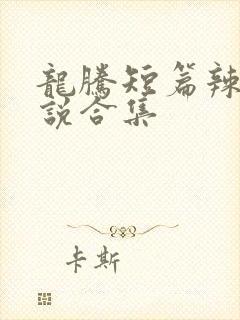 龍騰短篇辣
說合集
卡斯